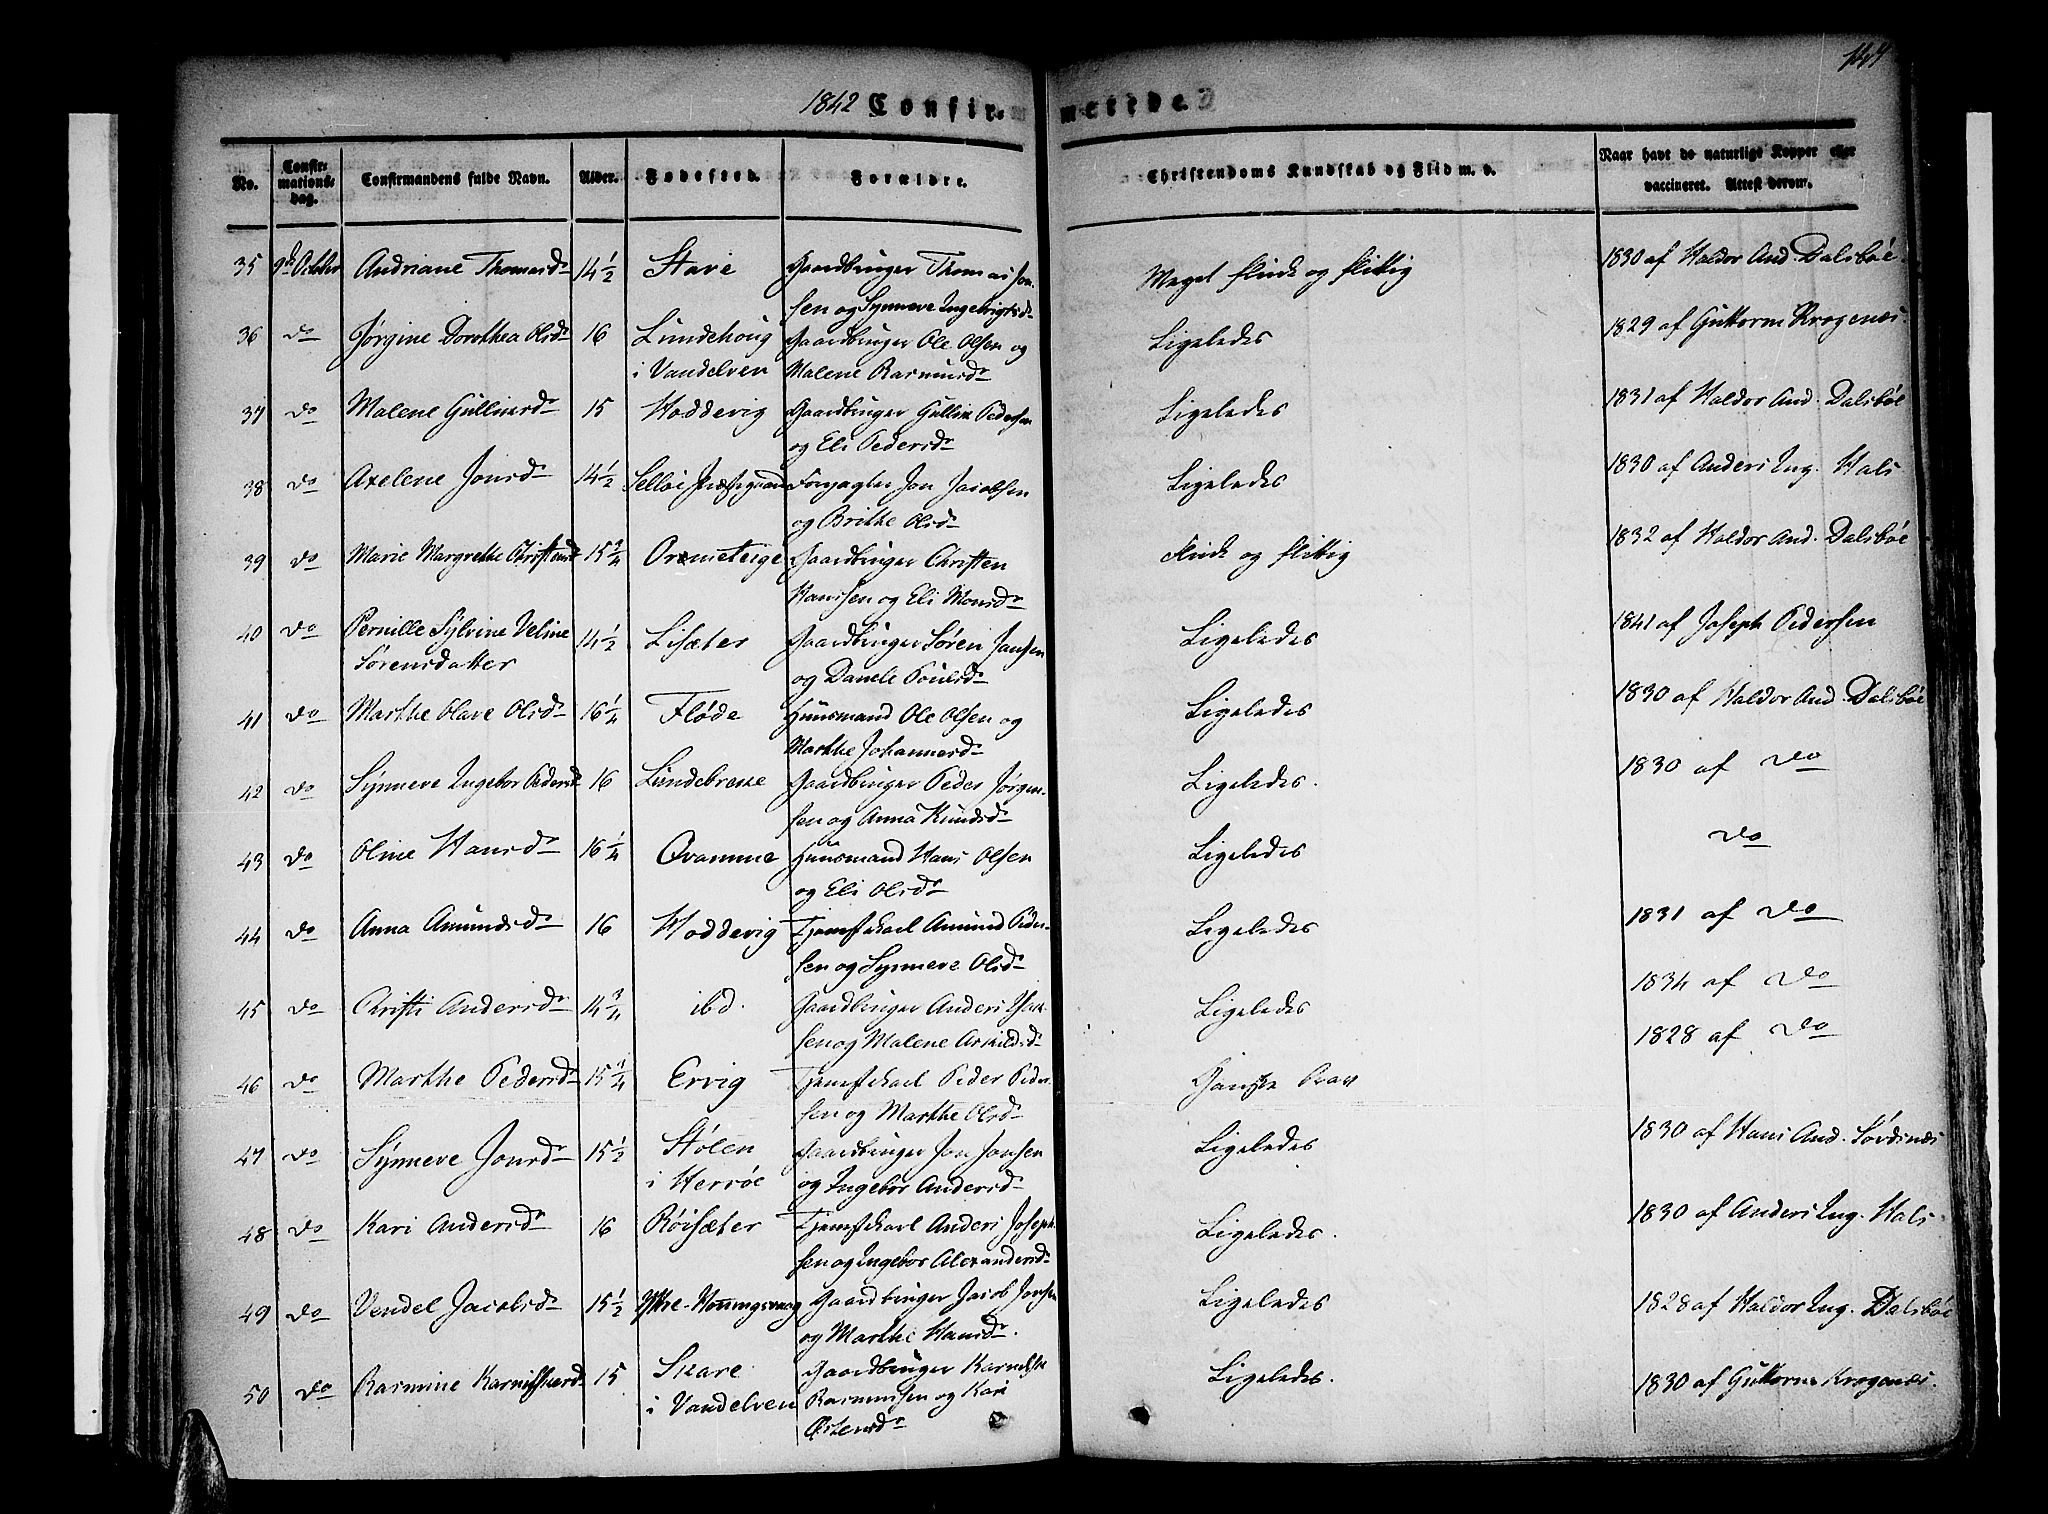 1842 Confirmerede.
No. Confirmationsdag. Confirmandens fulde Navn. Alder. Fødested. Forældre. Christendoms Kundskab og Flid m. v. Naar havt de naturlige Kopper eller vaccineret. Attest derom.
35 9de October Andriane Thomasdr 14 1/2 Stave Gaardbruger Thomas Jonsen og Synneve Ingebrigtsdr Meget flink og flittig 1830 af Haldor And. Dalsbøe
36 do Jørgine Dorothea Olsdr 16 Lundehoug i Vandelven Gaardbruger Ole Olsen og Malene Rasmusdr Ligeledes 1829 af Guttorm Krogenæs
37 do Malene Gullixsdr 15 Hoddevig Gaardbruger Gullix Pedersen og Eli Pedersdr Ligeledes 1831 af Haldor And. Dalsbøe
38 do Axelene Jonsdr 14 1/2 Selløe Jon Jacobsen og Brithe Olsdr Ligeledes 1830 af Anders Ing. Hals
39 do Marie Margrethe Christensdr 15 3/4 Ormeteige Gaardbruger Christen Hanssen og Eli Monsdr Flink og flittig 1832 af Haldor And. Dalsbøe
40 do Pernille Sylvine Veline Sørensdatter 14 1/2 Lisæter Gaardbruger Søren Jansen og Danele Poulsdr Ligeledes 1841 af Joseph Pedersen
41 do Marthe Olave Olsdr 16 1/4 Fløde Huusmand Ole Olsen og Marthe Johannesdr Ligeledes 1830 af Haldor And. Dalsbøe
42 do Synneve Ingebor Pedersdr 16 Lundebrekke Gaardbruger Peder Jørgensen og Anna Knudsdr Ligeledes. 1830 af do
43 do Oline Hansdr 16 1/4 Qvamme Huusmand Hans Olsen og Eli Olsdr Ligeledes do
44 do Anna Amundsdr 16 Hoddevig Tjenestekarl Amund Pedersen og Synneve Olsdr Ligeledes 1831 af do
45 do Christi Andersdr 14 3/4 ibd. Gaardbruger Anders Isaksen og Malene Askildsdr Ligeledes 1834 af do
46 do Marthe Pedersdr 15 3/4 Ervig Tjenestekarl Peder Pedersen og Marthe Olsdr Ganske brav 1828 af do
47 do Synneve Jonsdr 15 1/2 Stølen i Herrøe Gaardbruger Jon Jonsen og Ingebor Andersdr Ligeledes 1830 af Hans And. Sørdsnæs
48 do Kari Andersdr 16 Røisæter Tjenestekarl Anders Josephsen og Ingebor Alexandersdr Ligeledes. 1830 af Anders Ing. Hals
49 do Vendel Jacobsdr 15 1/2 Ytre-Honningsvaag Gaardbruger Jacob Jonsen og Marthe Hansdr. Ligeledes 1828 af Haldor Ing. Dalsbøe
50 do Rasmine 15 Skare i Vandelven Gaardbruger Rasmussen og Kari Østensdr Ligeledes. 1830 af Guttorm Krogenæs.